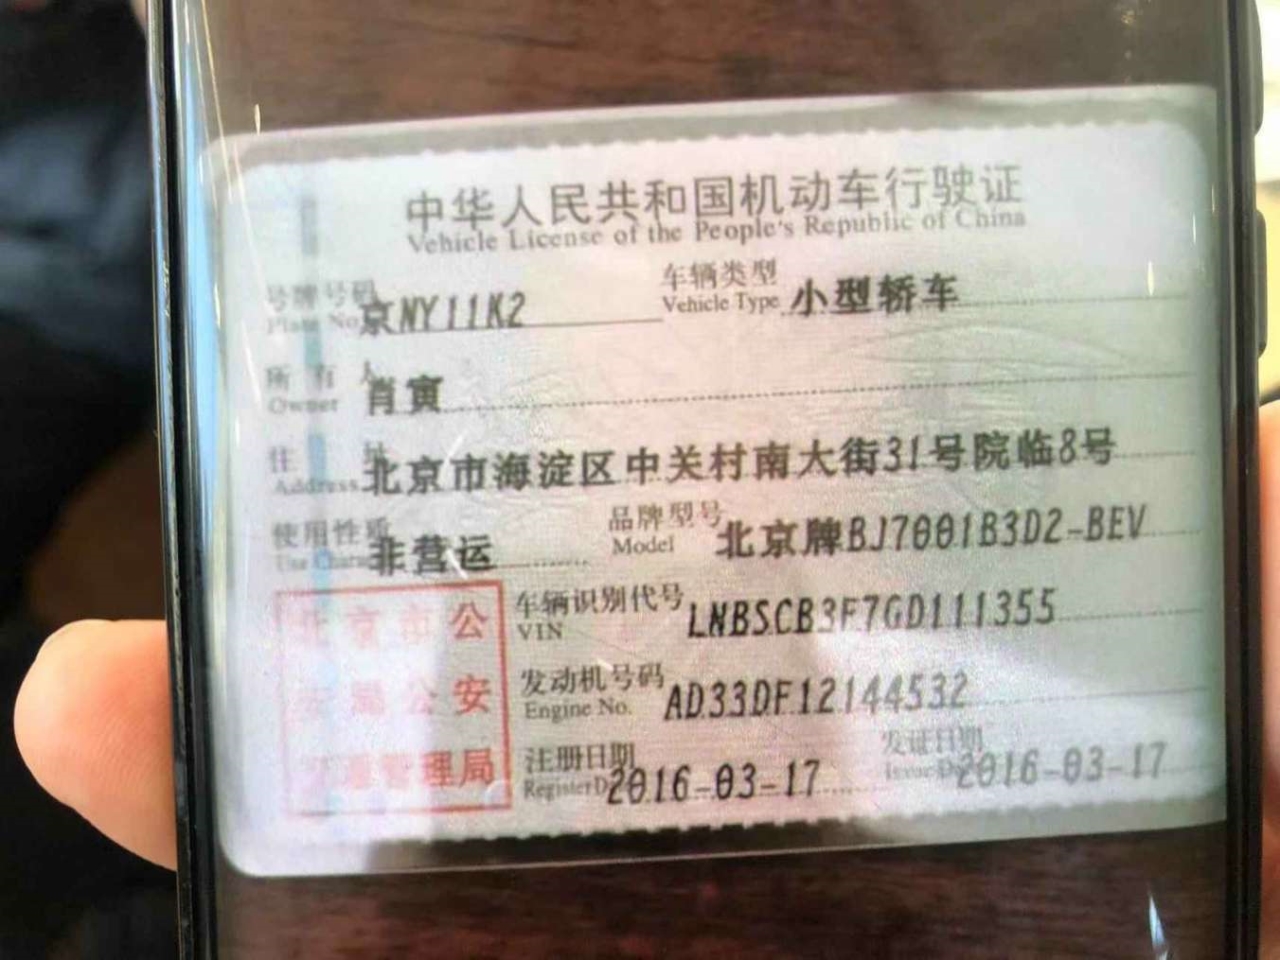 中华人民共和国机动车行驶证
Vehicle License of the People's Republic of China
号牌号码 京NY11K2 车辆类型 小型轿车
Plate No. Vehicle Type
所有人 肖寅
Owner
住址 北京市海淀区中关村南大街31号院临8号
Address
使用性质 非营运 品牌型号 北京牌BJ7001B3D2-BEV
Use Charac Model
北京市公
安局公安
交通管理局
车辆识别代号 LNBSCB3F7GD111355
VIN
发动机号码 AD33DF12144532
Engine No.
注册日期 2016-03-17 发证日期 2016-03-17
Register D Issue D